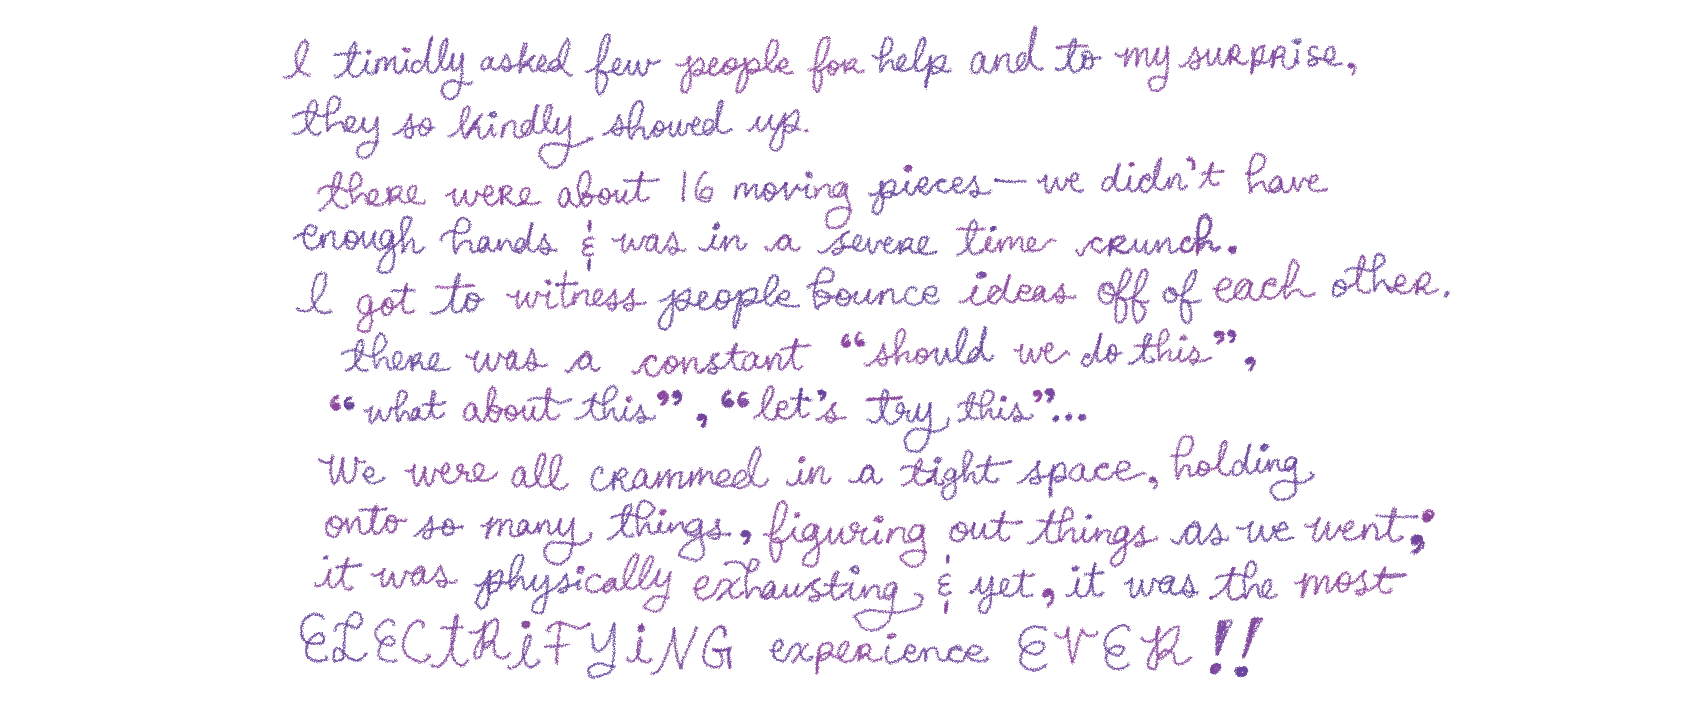 I timidly asked few people for help and to my surprise,
they so kindly showed up.
there were about 16 moving pieces— we didn't have
enough hands & was in a severe time crunch.
I got to witness people bounce ideas off of each other.
there was a constant “should we do this”,
“what about this”, “let's try this”...
We were all crammed in a tight space, holding
onto so many things, figuring out things as we went;
it was physically exhausting, & yet, it was the most
ELECTRiFYiNG experience EVER!!